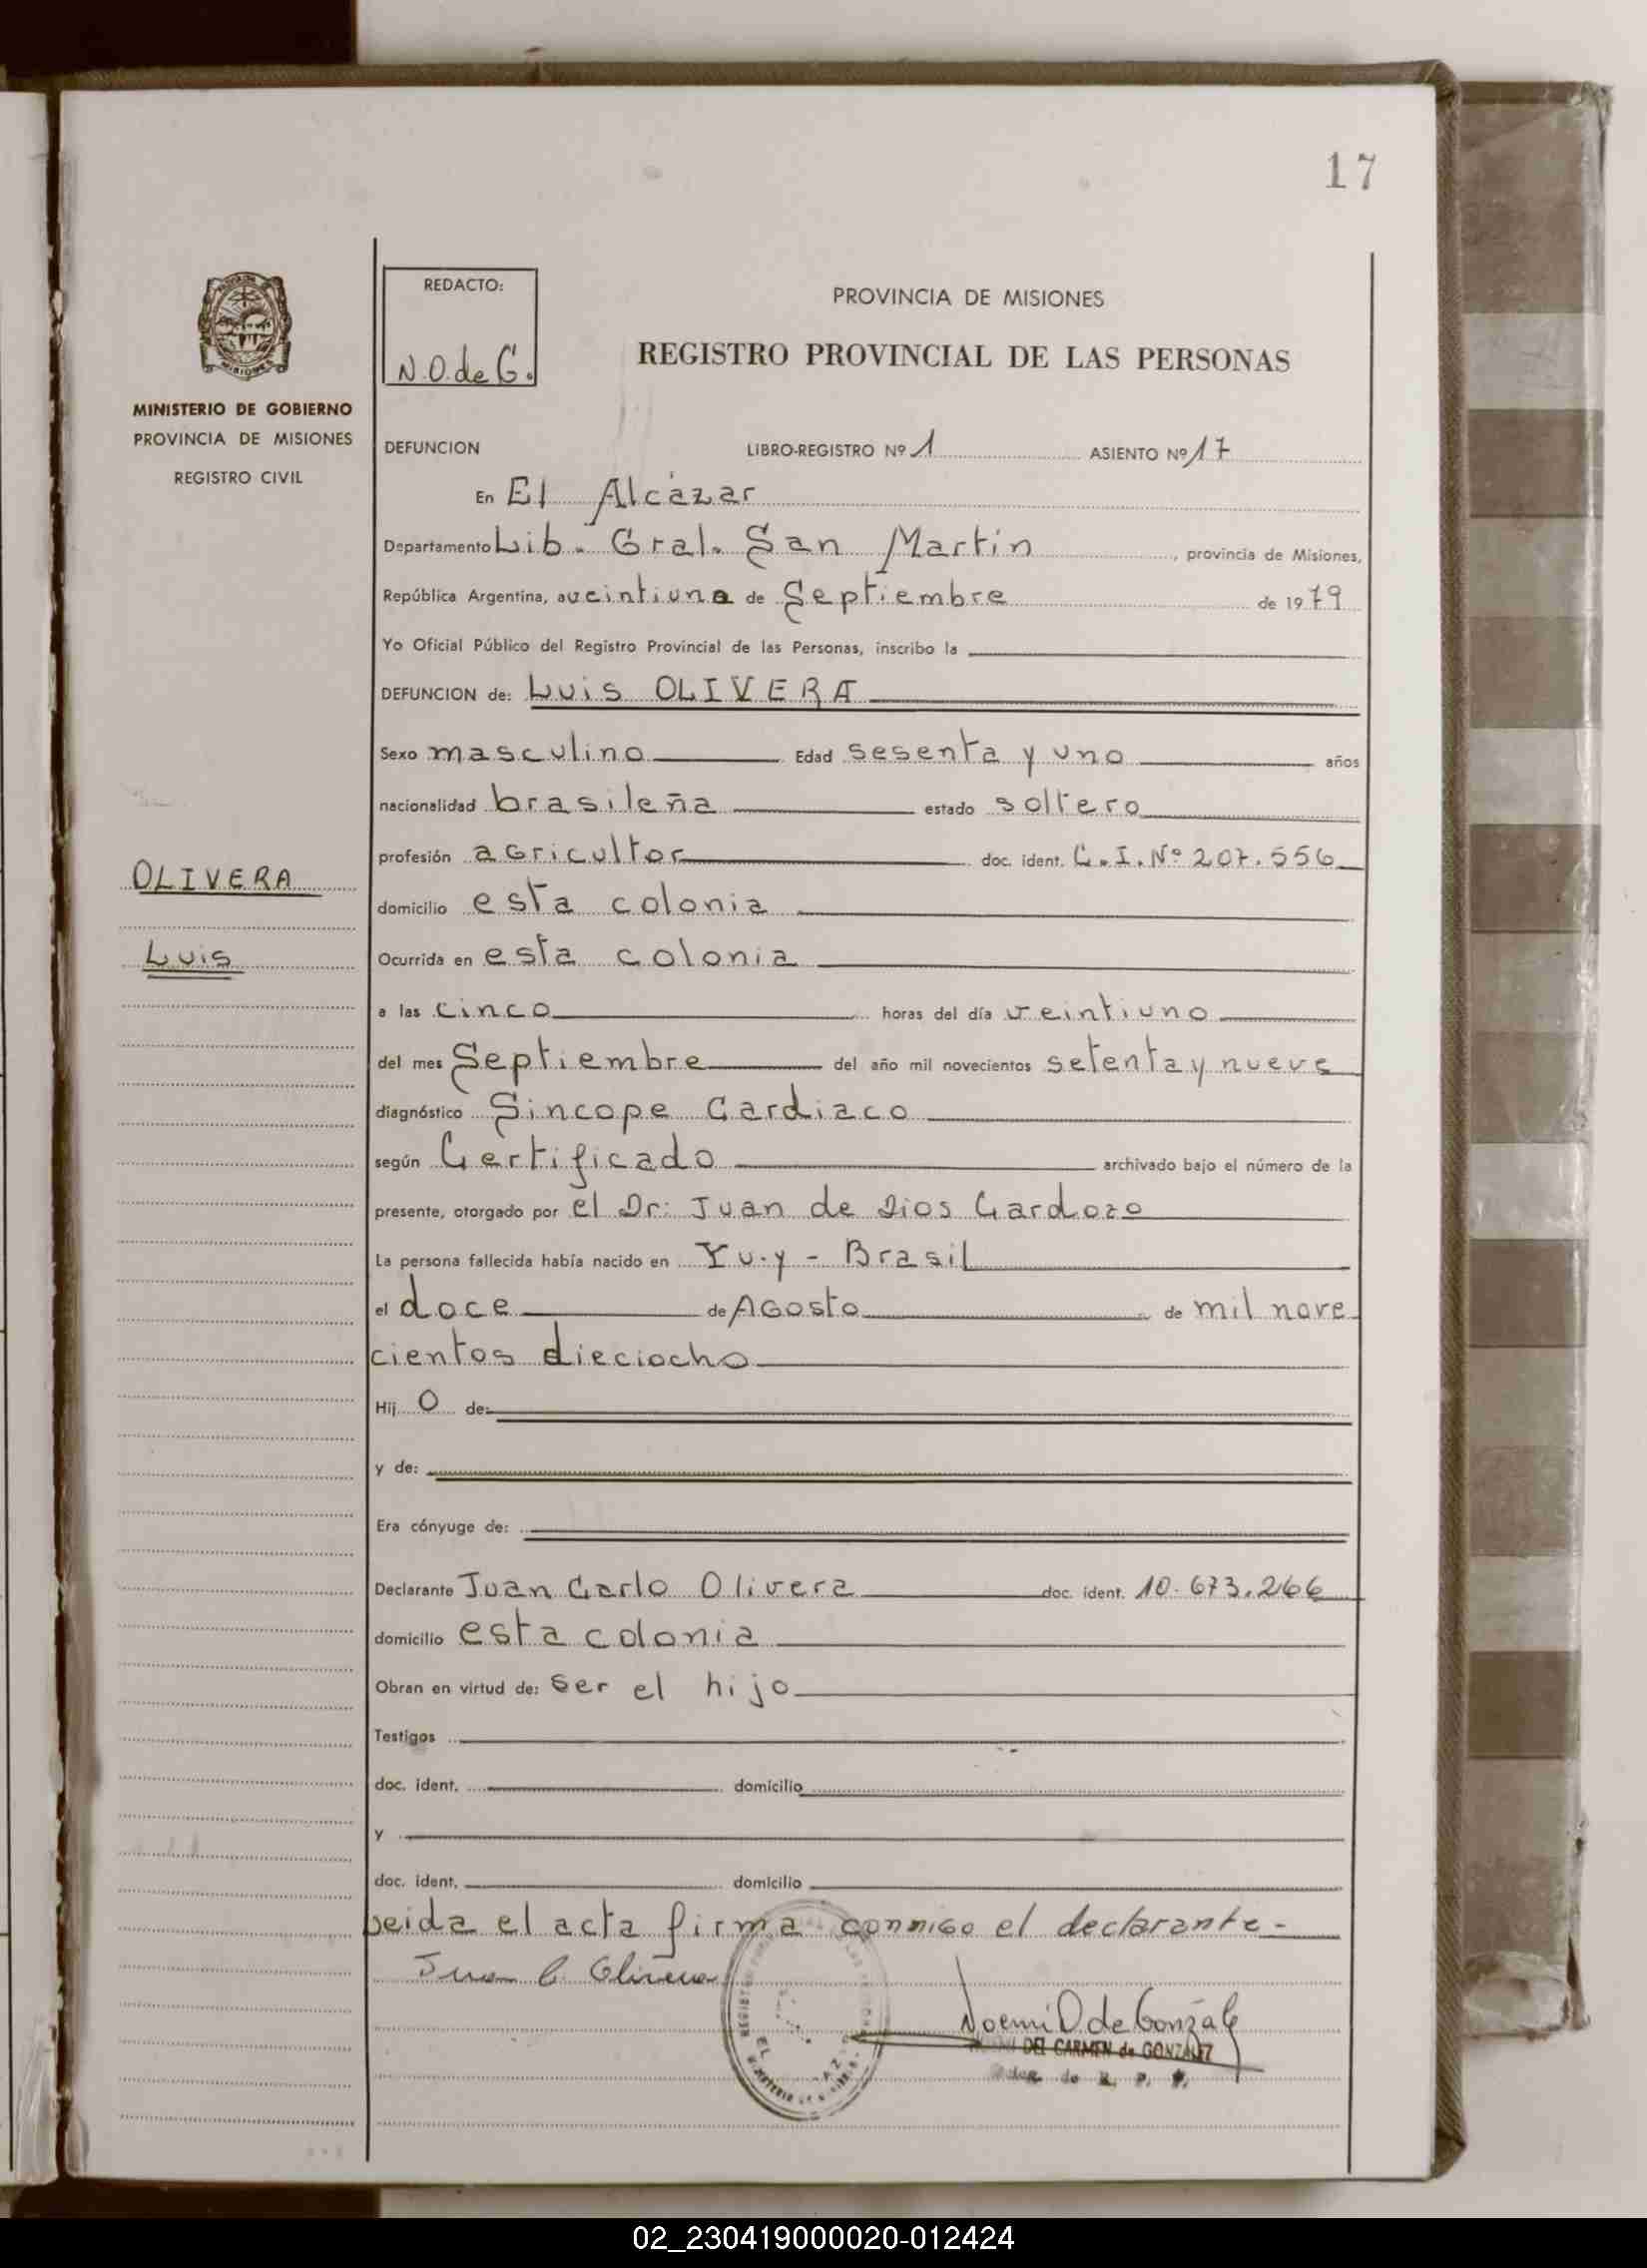 17
REDACTO:
N.O. de G.
PROVINCIA DE MISIONES
REGISTRO PROVINCIAL DE LAS PERSONAS
MINISTERIO DE GOBIERNO
PROVINCIA DE MISIONES
REGISTRO CIVIL
DEFUNCION LIBRO-REGISTRO Nº 1 ASIENTO Nº 17
En El Alcázar
Departamento Lib. Gral. San Martín, provincia de Misiones,
República Argentina, a veintiuna de Septiembre de 1979
Yo Oficial Público del Registro Provincial de las Personas, inscribo la
DEFUNCION de: Luis OLIVERA
Sexo masculino Edad sesenta y uno años
nacionalidad brasileña estado soltero
profesión agricultor doc. ident. C.I. Nº 207.556
OLIVERA
domicilio esta colonia
Luis
Ocurrida en esta colonia
a las cinco horas del día veintiuno
del mes Septiembre del año mil novecientos setenta y nueve
diagnóstico Sincope Cardiaco
según Certificado archivado bajo el número de la
presente, otorgado por el Dr: Juan de Dios Cardozo
La persona fallecida había nacido en Yu.y - Brasil
el doce de Agosto de mil nove
cientos dieciocho
Hij o de:
y de:
Era cónyuge de:
Declarante Juan Carlo Olivera doc. ident. 10.673.266
domicilio esta colonia
Obran en virtud de: ser el hijo
Testigos
doc. ident. domicilio
y
doc. ident. domicilio
Leida el acta firma conmigo el declarante -
Juan C. Olivera
Noemi O de Gonzalez
DEL CARMEN de GONZALEZ
02_230419000020-012424